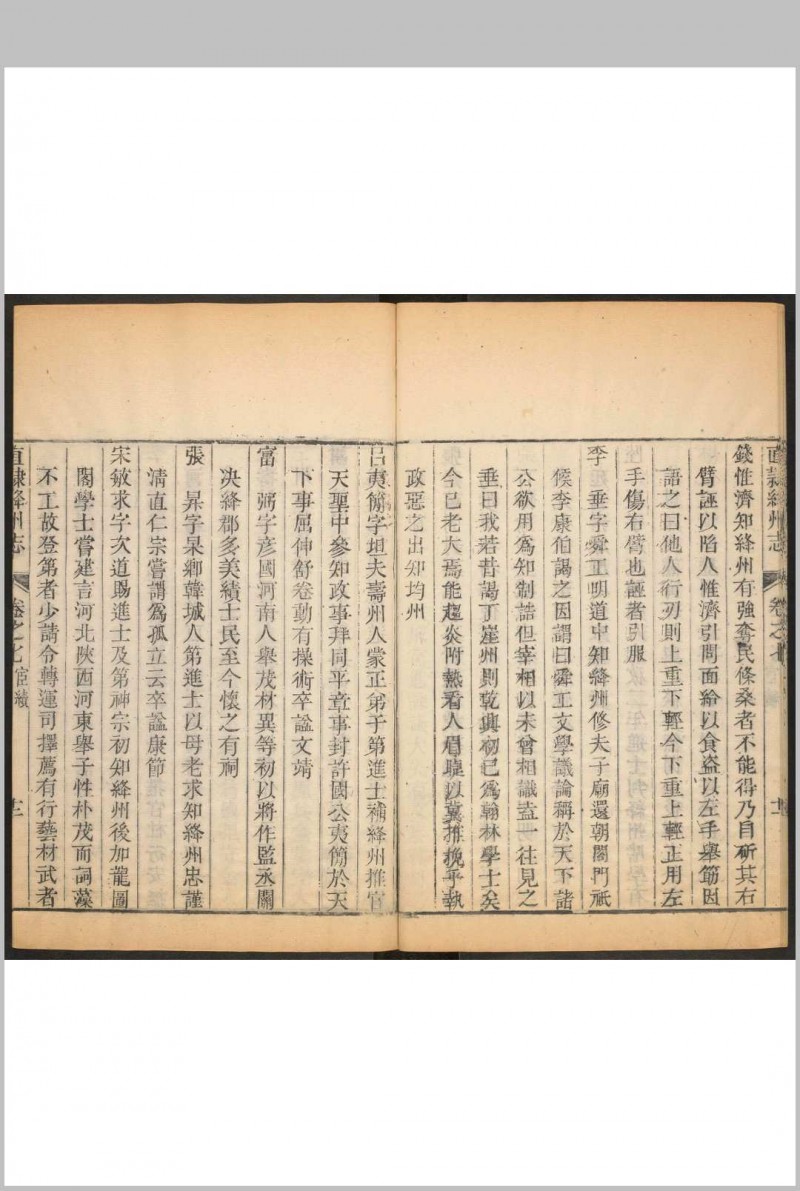 直隸絳州志 卷之七 十二
錢惟濟知絳州有強奪民條桑者不能得乃自斫其右
臂誣以陷人惟濟引問面給以食盜以左手舉筯因
語之曰他人行刃則上重下輕今下重上輕正用左
手傷右臂也誣者引服
李 垂字舜工明道中知絳州修夫子廟還朝閤門祗
候李康伯謁之因謂曰舜工文學議論稱於天下諸
公欲用爲知制誥但宰相以未曾相識盍一往見之
垂曰我若昔謁丁崖州則乾興初已爲翰林學士矣
今已老大焉能趨炎附熱看人眉睫以冀推挽乎執
政惡之出知均州
呂夷簡字坦夫壽州人蒙正弟子第進士補絳州推官
天聖中參知政事拜同平章事封許國公夷簡於天
下事屈伸舒卷動有操術卒諡文靖
富 弼字彥國河南人舉茂材異等初以將作監丞關
决絳郡多美績士民至今懷之有祠
張 昇字杲卿韓城人第進士以母老求知絳州忠謹
清直仁宗嘗謂爲孤立云卒諡康節
宋敏求字次道賜進士及第神宗初知絳州後加龍圖
閣學士嘗建言河北陝西河東舉子性朴茂而詞藻
不工故登第者少請令轉運司擇薦有行藝材武者
直隸絳州志 卷之七 宦績 十二